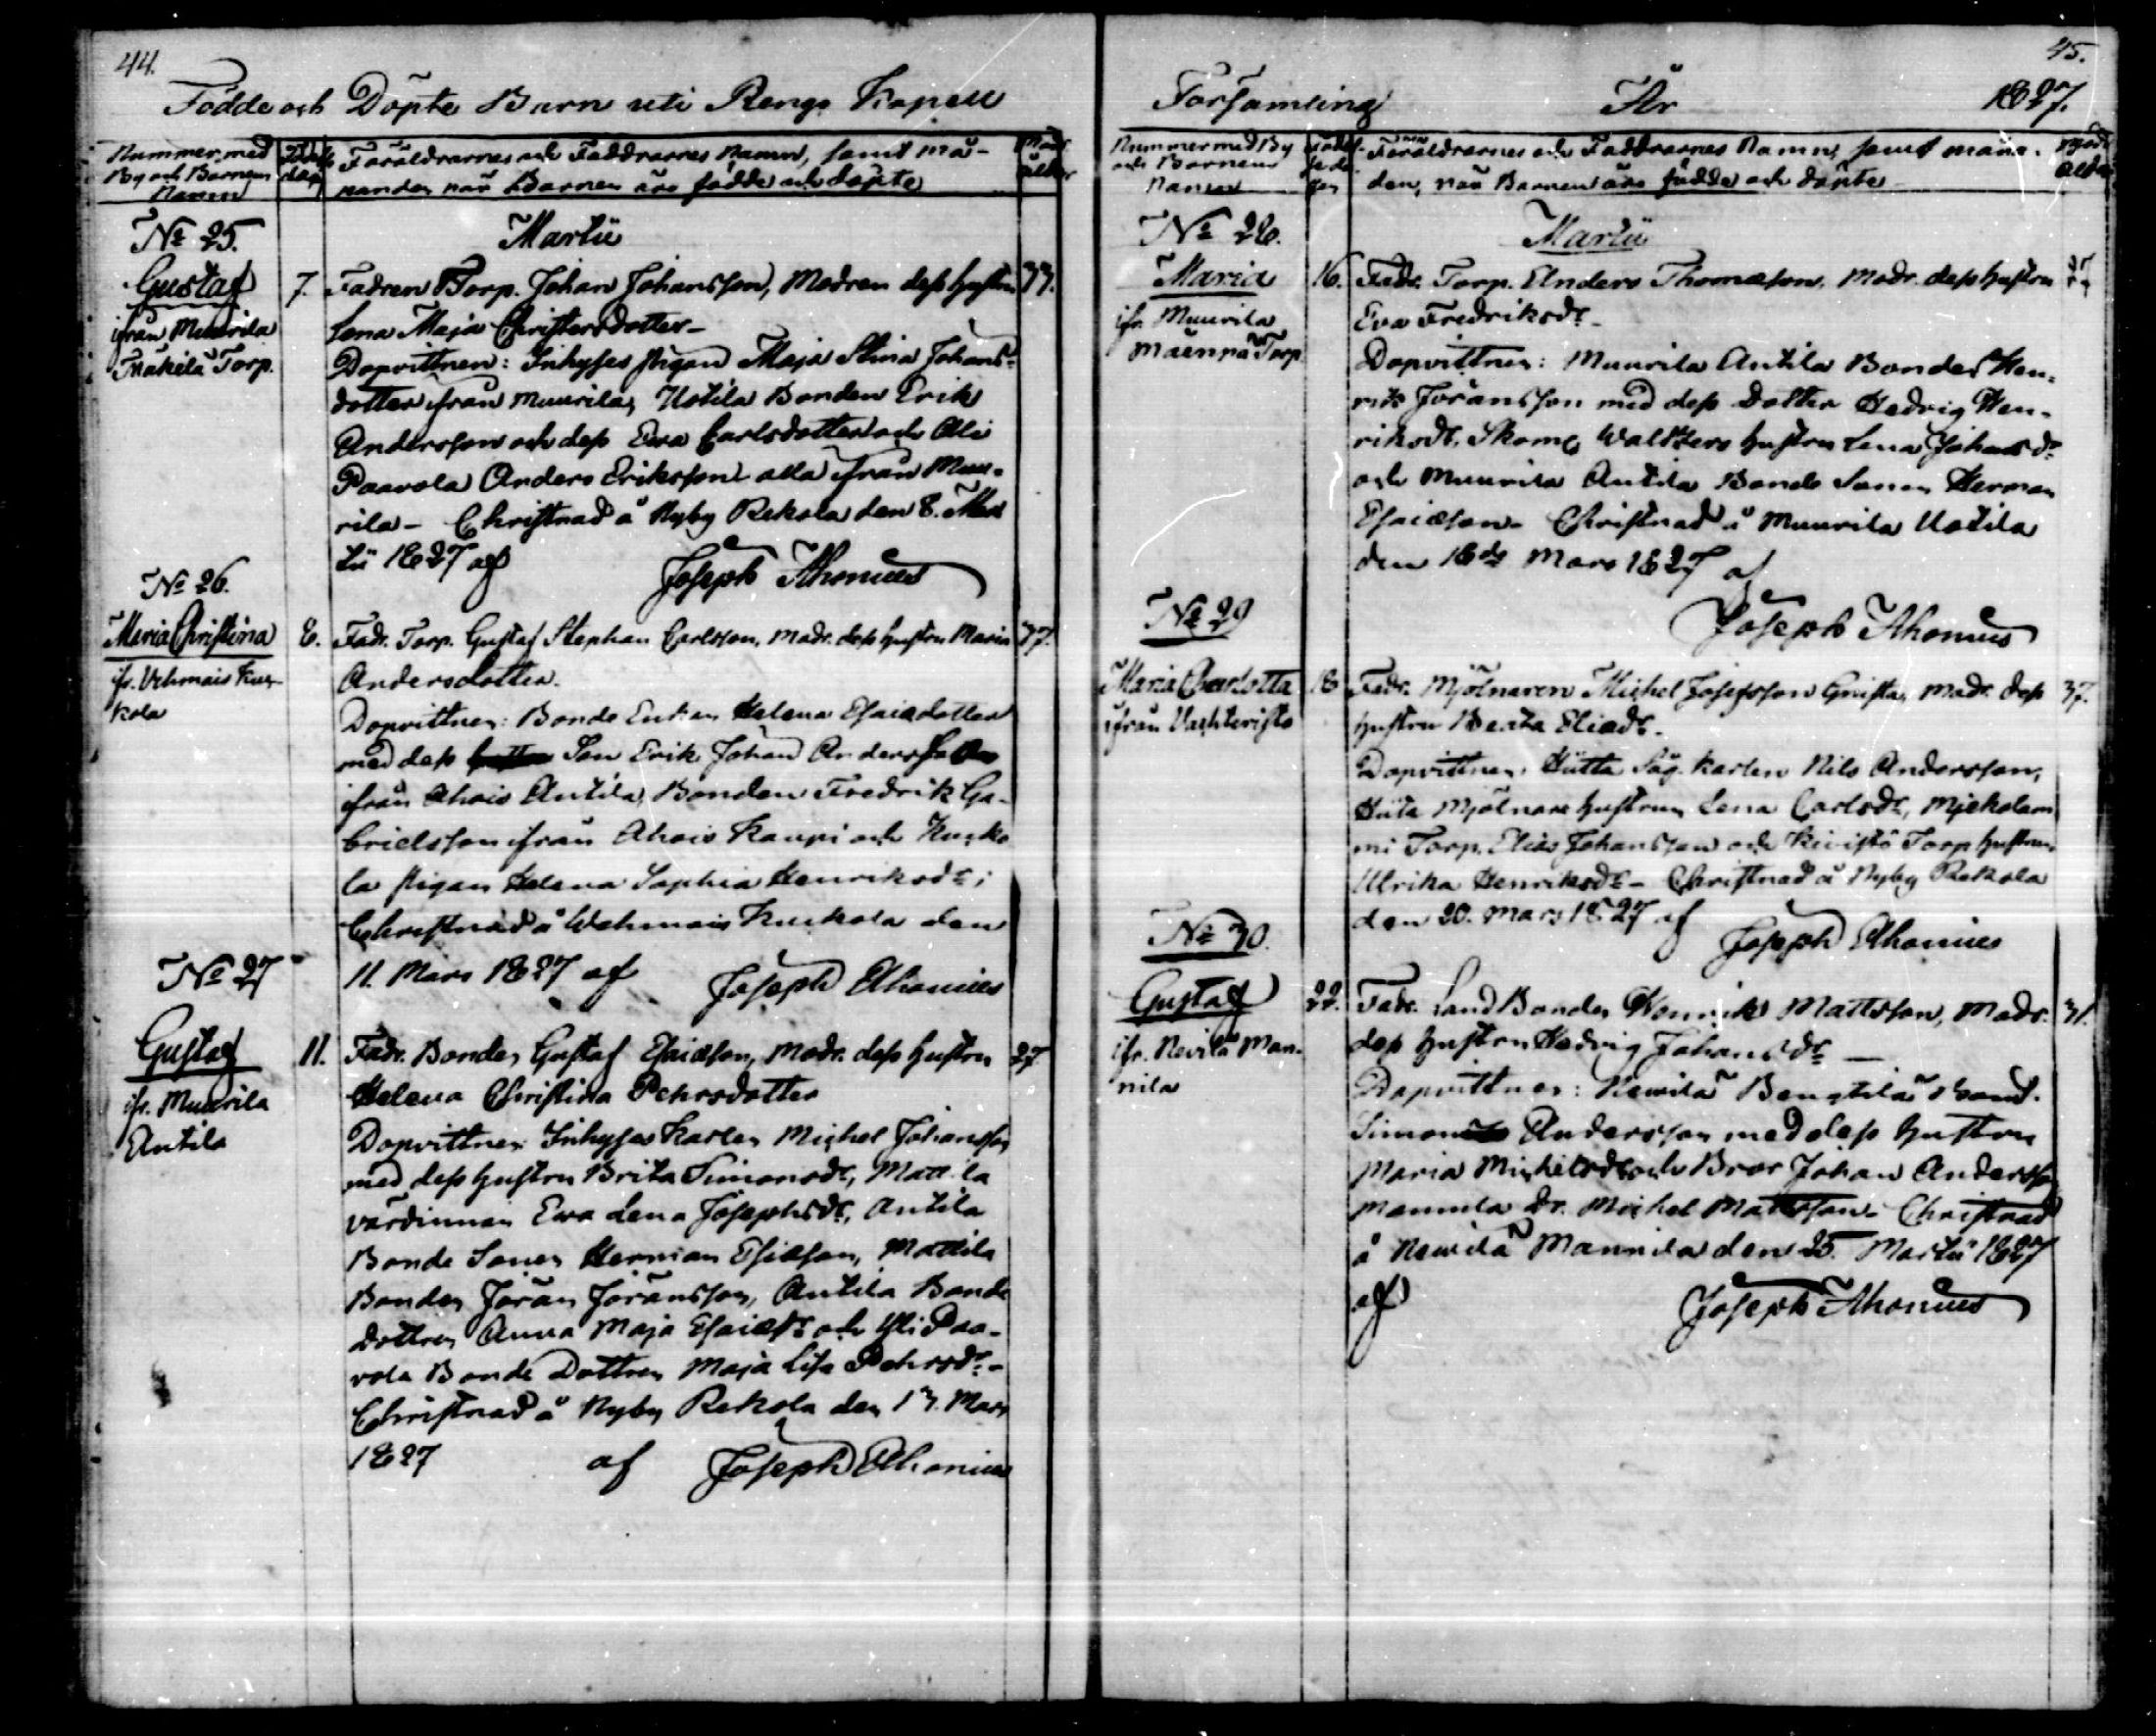 44.
Födde och Döpte Barn uti Rengo Kapell
Nummer med By och Barnens Namn
Födelse dag
Föräldrarnes och Faddrarnes Namn, samt må-
naden när Barnen äro födde och döpte
Modr. ålder
Martii
No 25.
Gustaf
ifrån Muurila
Mäkelä Torp.
7.
Fadren Torp. Johan Johansson, Modren dess hustru
33.
Lena Maja Christersdotter
Dopvittnen: Inhyses pigan Maja Stina Johans-
dotter ifrån Muurila, Uotila Bonden Erik
Andersson och dess Ewa Carlsdotter och Ali
Paavola Anders Eriksson alla ifrån Muu-
rila - Christnad å Nyby Rekola den 8. Mar
tii 1827 af
Joseph Ahonius
No 26.
Maria Christina
ifr. Vehmais Kuu-
kola
8.
Fadr. Torp. Gustaf Stephan Carlsson, Modr. dess hustru Maria
37.
Andersdotter.
Dopvittnen: Bonde Enkan Helena Esaiedotter
med dess Son Erik Johan Andersson
ifrån Ahois Antila, Bonden Fredrik Ga-
brielsson ifrån Ahois Kaupi och Kuuko
la pigan Helena Sophia Henriksdr;
Christnad å Wehmais Kuukola den
11. Mars 1827 af
Joseph Ahonius
No 27
Gustaf
ifr. Muurila
Antila
11.
Fadr. Bonden Gustaf Esaiæson, Modr. dess hustru
27
Helena Christina Pehrsdotter
Dopvittnen Inhyses Karlen Michel Johansson
med dess hustru Brita Simonsdr, Mattila
värdinnan Ewa Lena Josephsdr, Antila
Bonde Sonen Herman Esaiæson, Mattila
Bonden Jöran Jöransson, Antila Bonde
dottren Anna Maja Esaiædr och Yli Paa-
vola Bonde Dottren Maja Lisa Pehrsdr-
Christnad å Nyby Rekola den 13. Mars
1827 af Joseph Ahonius
45.
Församling År 1827.
Nummer med By och Barnens Namn
Föräldrarnes och Faddrarnes Namn, samt måna-
den, när Barnen äro födde och döpte
Modr. Ålder
Martii
No 28.
Maria
ifr. Muurila
Mäenpä Torp
16.
Fadr. Torp. Anders Thomæson. Modr. dess hustru
Eva Fredriksdr
Dopvittnen: Muurila Antila Bonden Hen-
rik Jöransson med dess Dotter Hedvig Hen-
riksdr, Skom. Waltters hustru Lena Johansdr
och Muurila Antila Bonde Sonen Herman
Esaiæson- Christnad å Muurila Uotila
den 18de Mars 1827 af
Joseph Ahonius
No 29
Maria Charlotta
ifrån Vaahteristo
18
Fadr. Mjölnaren Michel Josefsson Gnista, Modr. dess
37.
hustru Beata Eliædr.
Dopvittnen: Hiitta Såg. Karlen Nils Andersson,
Hiita Mjölnare hustrun Lena Carlsdr, Mjekolam
mi Torp. Elias Johansson och Kivistö Torp hustrun
Ulrika Henriksdr- Christnad å Nyby Rekola
den 20. Mars 1827 af
Joseph Ahonius
No 30.
Gustaf
ifr. Nevilä Man-
nila
22.
Fadr. Land Bonden Henrik Mattsson, Modr.
31.
dess hustru Hedvig Johansdr
Dopvittnen: Newilä Bengtilä Bond.
Simon Andersson med dess hustru
Maria Michelsdr och Bror Johan Andersson
Mannila Dr. Michel Mattsson- Christnad
å Newilä Mannila den 25. Martii 1827
af
Joseph Ahonius